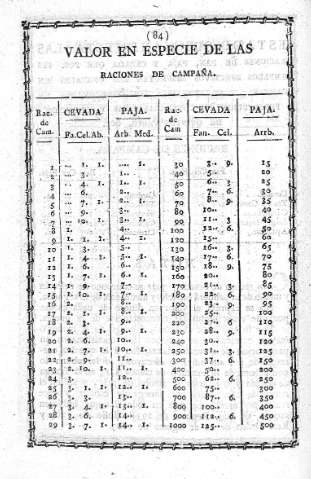 (84)
VALOR EN ESPECIE DE LAS
RACIONES DE CAMPAÑA.
Rac. de Cam. CEVADA PAJA. Rac. de Cam CEVADA PAJA.
Fa.Cel.Ab. Arb. Med. Fan. Cel. Arrb.
1 ... 1. 1. .... 1. 30 3.. 9. 15
2 ... 3. 1.. 40 5... 20
3 ... 4. 1. 1.. 1. 50 6.. 3 25
4 ... 6. 2.. 60 7.. 6. 30
5 ... 7. 1. 2.. 1. 70 8.. 9. 35
6 ... 9. 3... 80 10.. 40
7 ... 10. 1. 3.. 1. 90 11.. 3 45
8 1. 4.. 100 12.. 6. 50
9 1. 1. 1. 4.. 1. 120 15.. 60
10 1. 3. 5.. 130 16.. 3. 65
11 1. 4. 1. 5.. 1. 140 17.. 6. 70
12 1. 6. 6.. 150 18.. 9. 75
13 1. 7. 1. 6.. 1. 160 20.. 80
14 1. 9. 7.. 170 21.. 3. 85
15 1. 10. 1. 7.. 1. 180 22.. 6. 90
16 2. 8.. 190 23.. 9. 95
17 2. 1. 1. 8.. 1. 200 25.. 100
18 2. 3. 9.. 220 27.. 6. 110
19 2. 4. 1. 9.. 1. 230 28.. 9. 115
20 2. 6. 10.. 240 30.. 120
21 2. 7. 1. 10.. 1. 250 31.. 3. 125
22 2. 9. 11.. 300 37.. 6. 150
23 2. 10. 1. 11.. 1. 400 50.. 200
24 3. 12.. 500 62.. 6. 250
25 3. 1. 1. 12.. 1. 600 75.. 300
26 3. 3. 13.. 700 87.. 6. 350
27 3. 4. 1. 13.. 1. 800 100.. 400
28 3. 6. 14.. 900 112.. 6. 450
29 3. 7. 1. 14.. 1. 1000 125.. 500